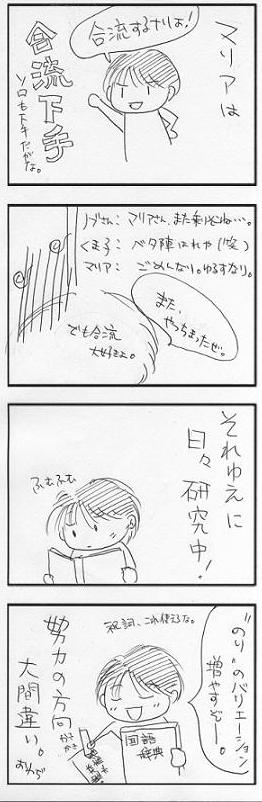 マリアは
合流するナリよ!
合流下手
ソロも下手だがな。
ノブさん: マリアさん、また乗りじゃね…。
くま子: ベタ陣はれや(笑)
マリア: ごめんなり。ゆるすなり。
また、
やっちまったぜ。
でも合流
大好きよ。
それゆえに
日々研究中!
ふむふむ
"のり"のバリエーション
増やすぞー。
祝詞、これ使えるな。
国語
辞典
かきかき
努力の方向
大間違い。